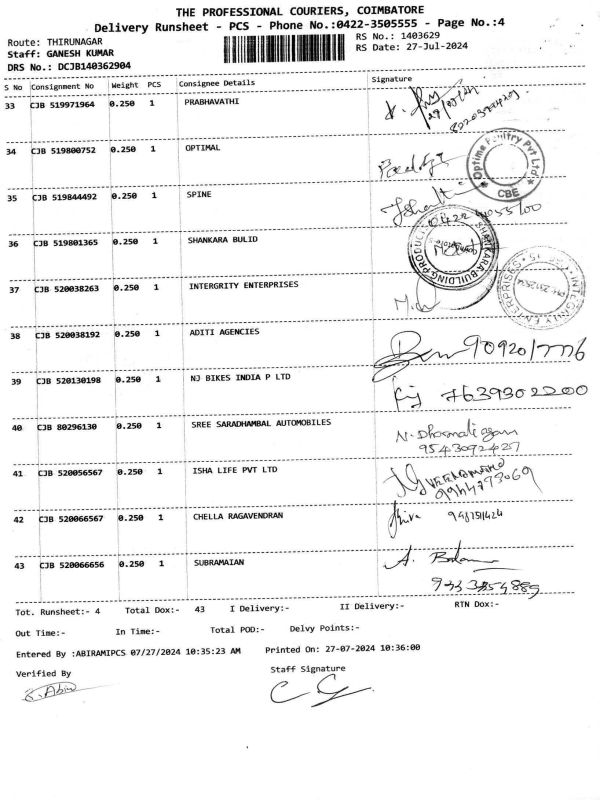 THE PROFESSIONAL COURIERS, COIMBATORE
Delivery Runsheet - PCS - Phone No.:0422-3505555 - Page No.:4
Route: THIRUNAGAR
RS No.: 1403629
Staff: GANESH KUMAR
RS Date: 27-Jul-2024
DRS No.: DCJB140362904
S No Consignment No Weight PCS Consignee Details Signature
33 CJB 519971964 0.250 1 PRABHAVATHI
34 CJB 519800752 0.250 1 OPTIMAL
Pvt Ltd
CBE
35 CJB 519844492 0.250 1 SPINE
36 CJB 519801365 0.250 1 SHANKARA BULID
37 CJB 520038263 0.250 1 INTERGRITY ENTERPRISES
38 CJB 520038192 0.250 1 ADITI AGENCIES
39 CJB 520130198 0.250 1 NJ BIKES INDIA P LTD
7639302200
40 CJB 80296130 0.250 1 SREE SARADHAMBAL AUTOMOBILES
9543092427
41 CJB 520056567 0.250 1 ISHA LIFE PVT LTD
42 CJB 520066567 0.250 1 CHELLA RAGAVENDRAN
43 CJB 520066656 0.250 1 SUBRAMAIAN
Tot. Runsheet:- 4 Total Dox:- 43 I Delivery:- II Delivery:- RTN Dox:-
Out Time:- In Time:- Total POD:- Delvy Points:-
Entered By :ABIRAMIPCS 07/27/2024 10:35:23 AM Printed On: 27-07-2024 10:36:00
Verified By
Staff Signature